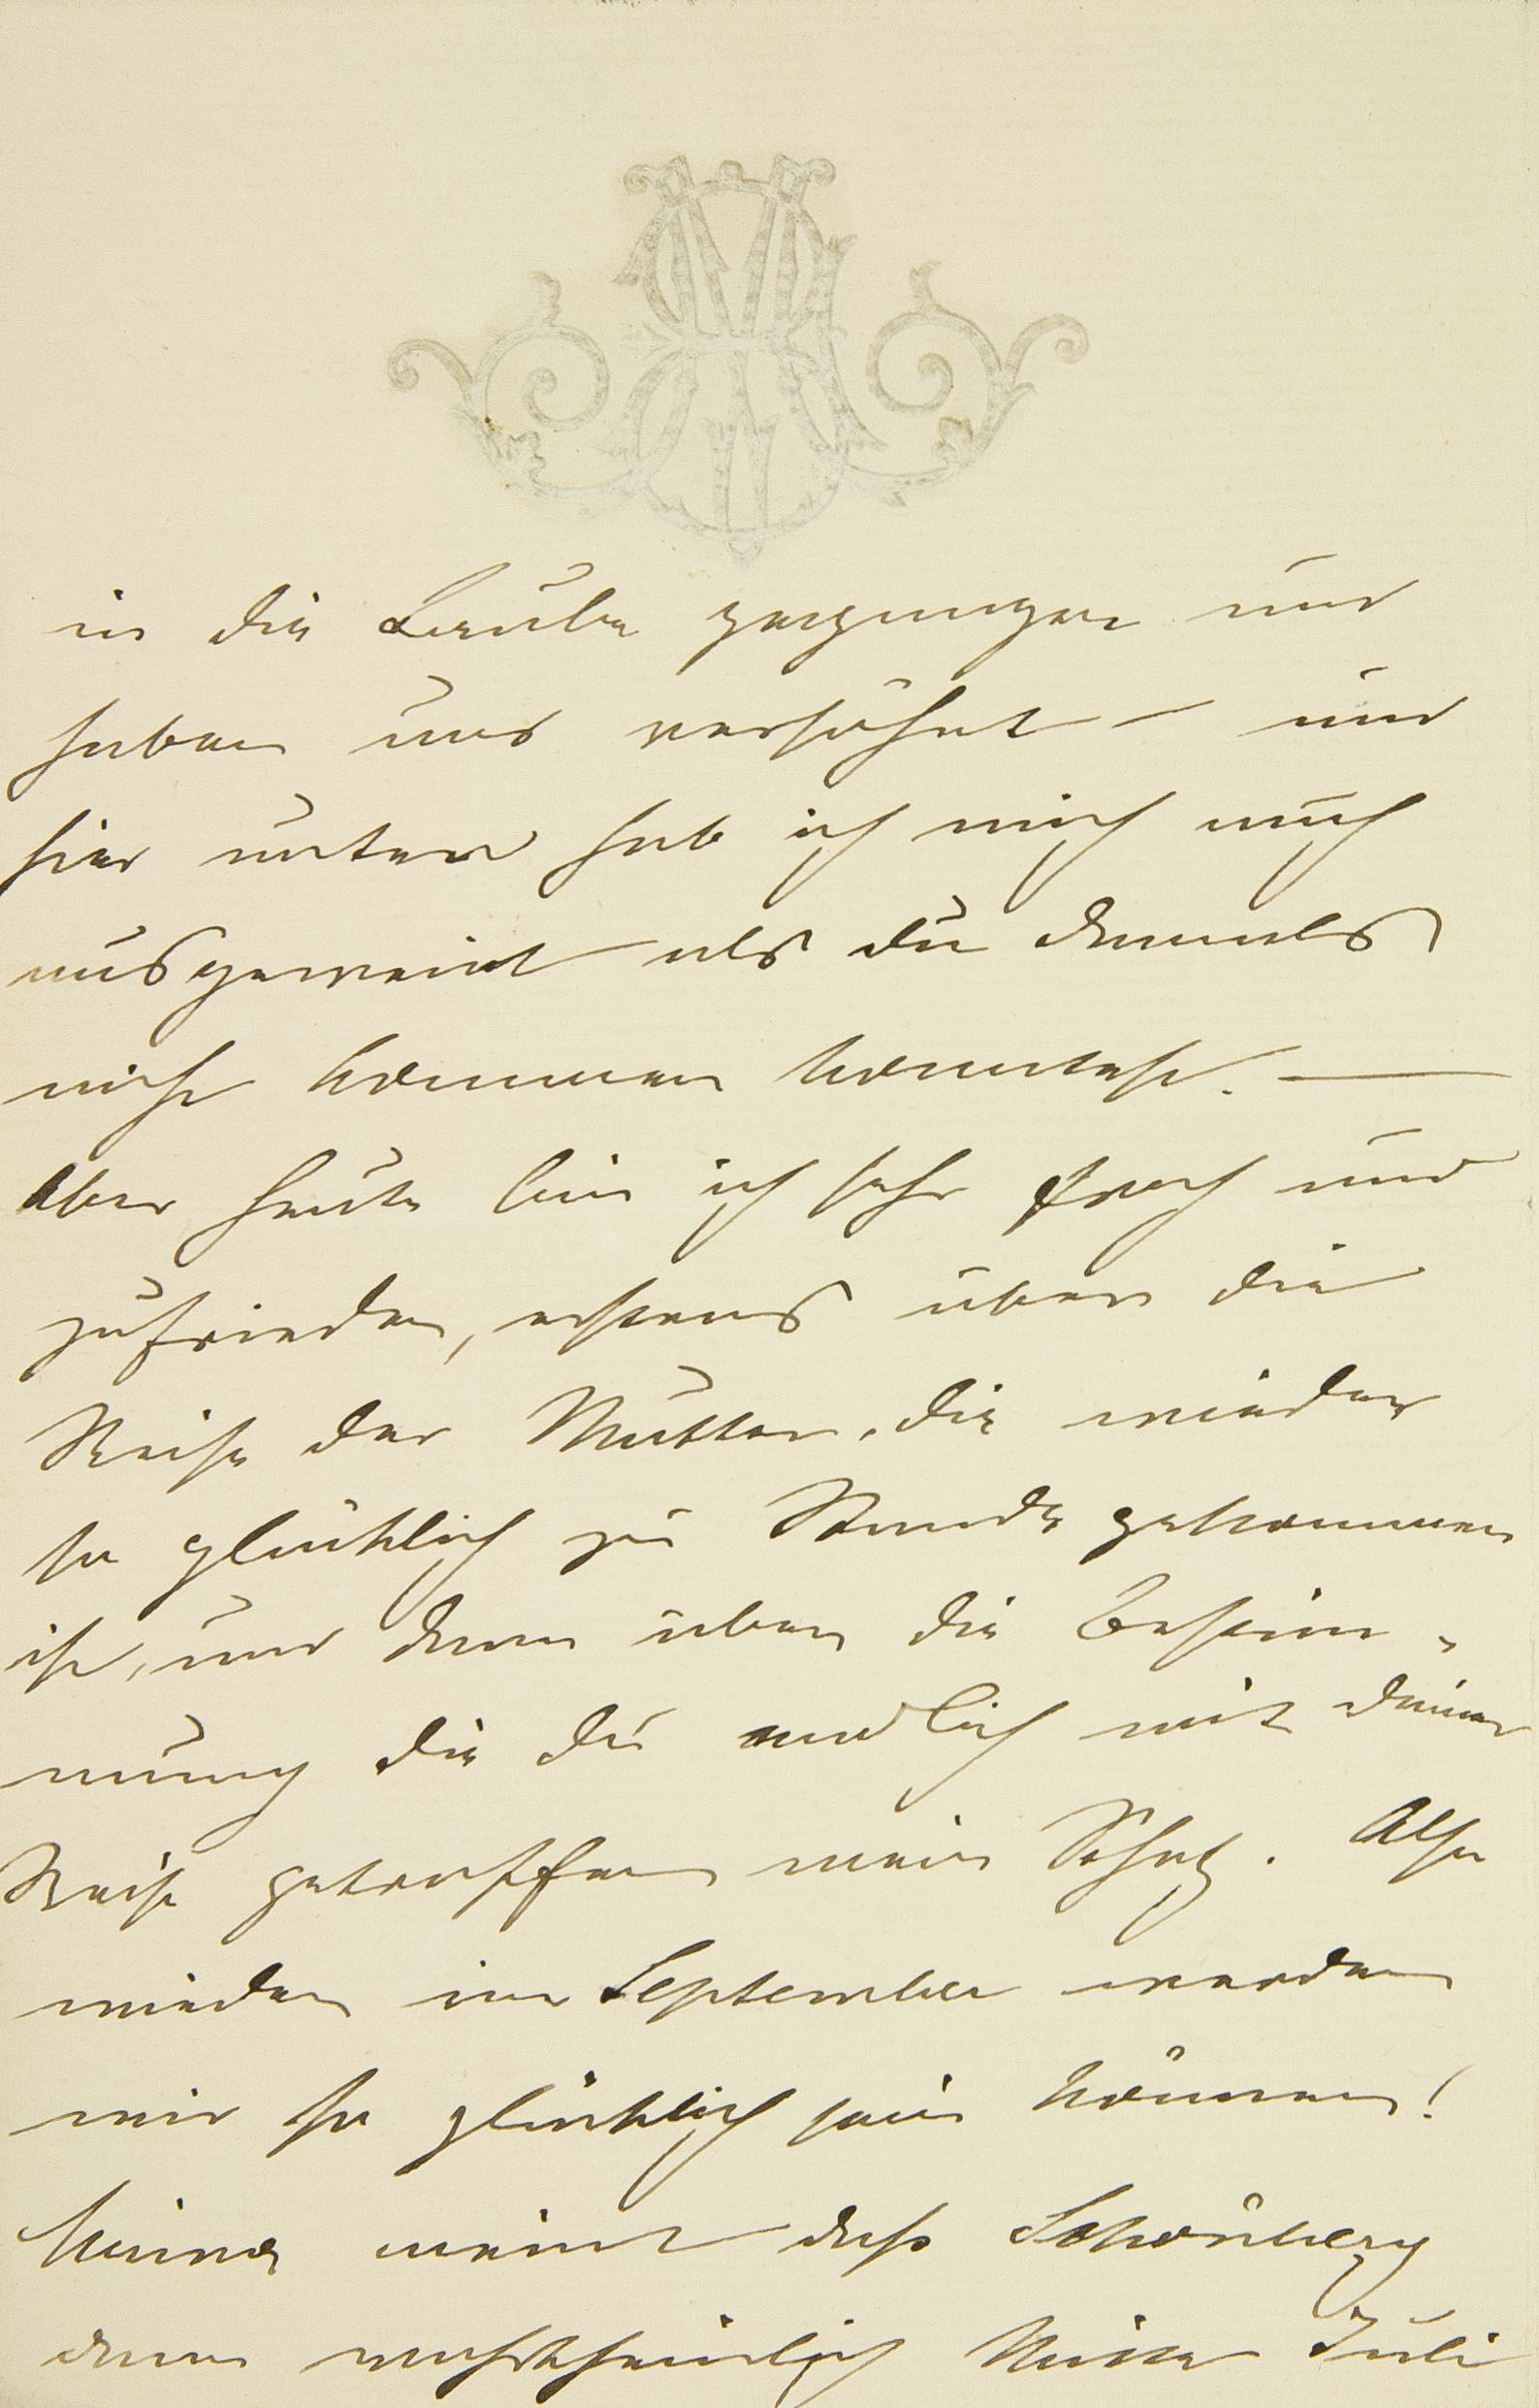 in die Laube gegangen und
haben uns versöhnt – und
hier unten hab ich mich auch
ausgeweint als du damals
nicht kommen konntest. —
Aber heute bin ich sehr froh und
zufrieden, erstens über die
Reise der Mutter, die wieder
so glücklich zu Stande gekommen
ist, und dann über die Bestim-
mung die du endlich mit deiner
Reise getroffen mein Schatz. Also
wieder im September werden
wir so glücklich sein können!
Minna meint daß Schönberg
dann wahrscheinlich Mitte Juli